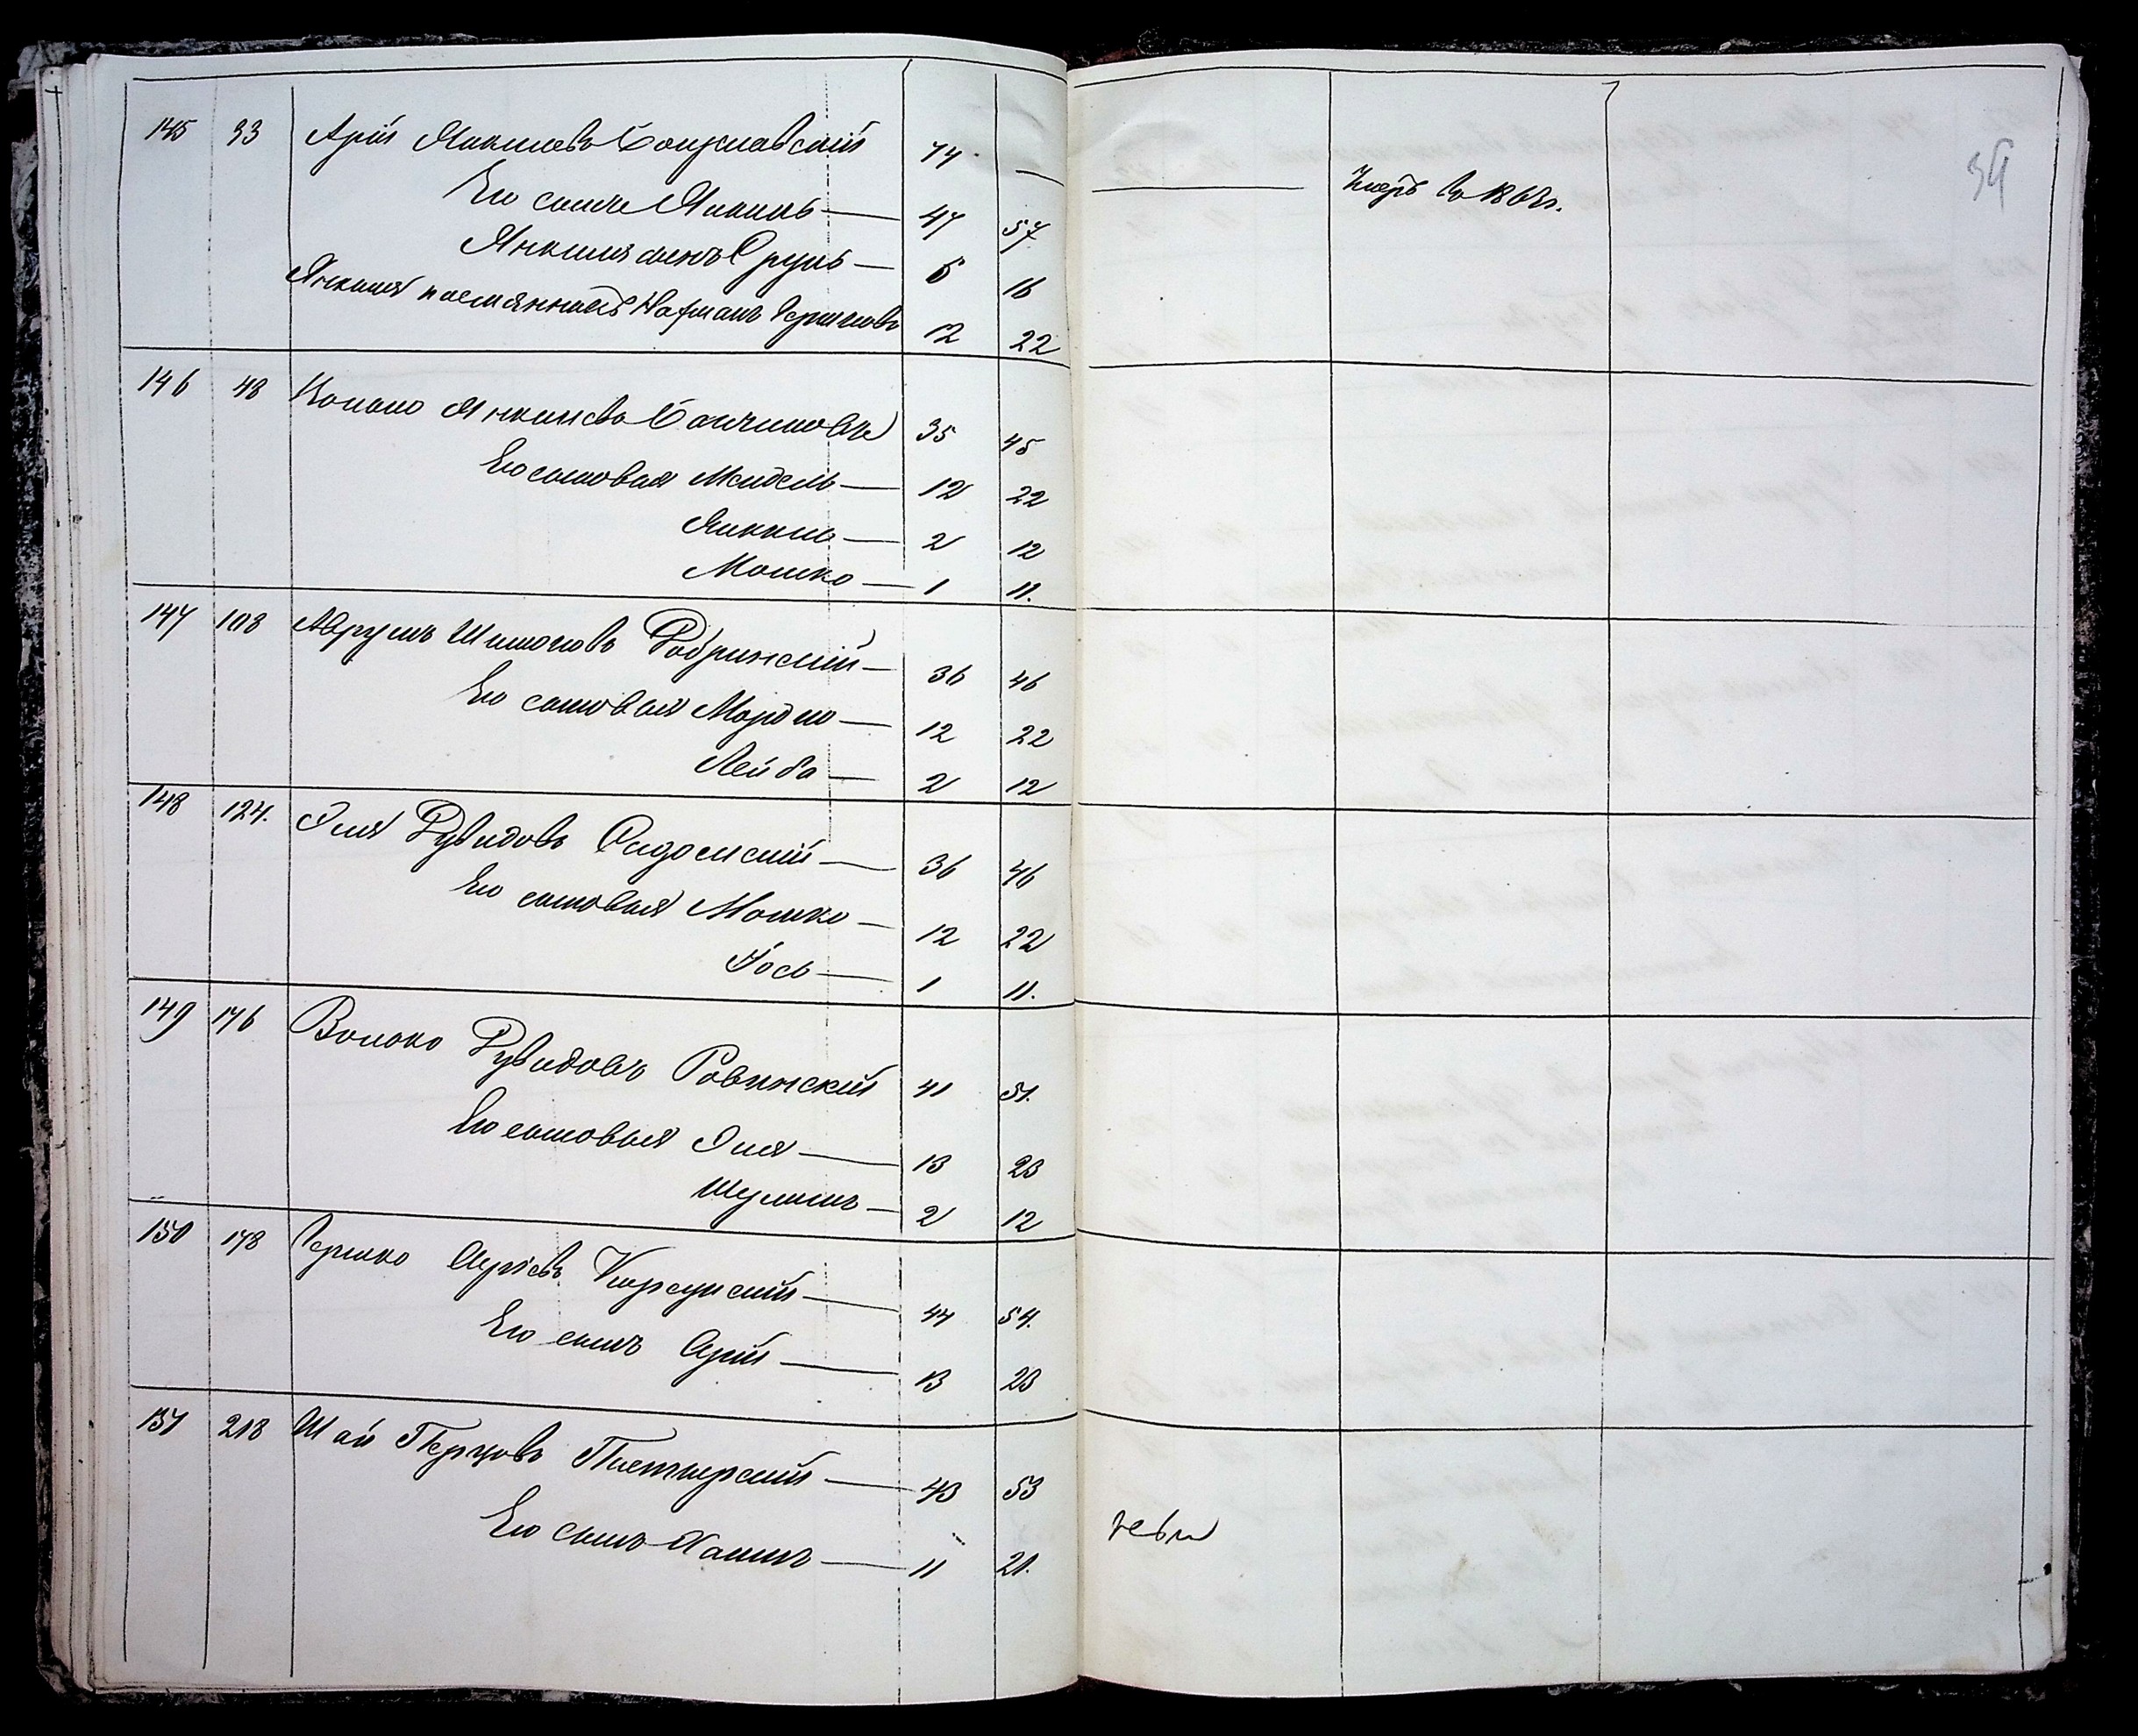 145 33 Арій Янкилевъ Богуславскій 74 —
Его сынъ Янкиль — 47 57
Янкиля сынъ Сруль — 6 16
Янкиля племянникъ Нафтанъ Гершковъ 12 22
146 48 Волько Янкилевъ 35 45
Его сыновья Мендель — 12 22
Янкиль — 2 12
Мошко — 1 11.
147 108 Аврумъ Шимоновъ — 36 46
Его сыновья Мордко — 12 22
Лейба — 2 12
148 124. Эля Рувидовъ — 36 46
Его сыновья Мошко — 12 22
Іось — 1 11.
149 176 Волько Рувидовъ Ровинскій 41 51.
Его сыновья Эля — 13 23
Шулимъ — 2 12
150 178 Гершко Аріевъ Корсунскій — 44 54.
Его сынъ Арій — 13 23
151 218 Шай Перцовъ — 43 53
Его сынъ Хаимъ — 11 21.
Умеръ въ 186 г.
39